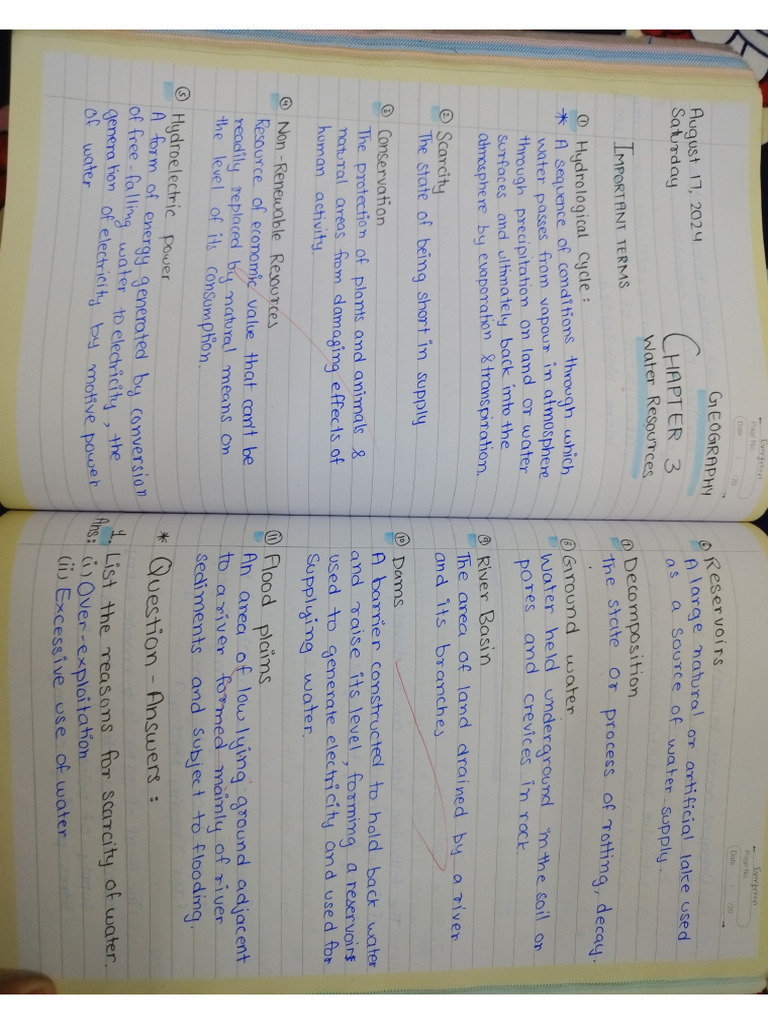 Evergreen
Page No.
Date / /20
GEOGRAPHY
August 17, 2024
CHAPTER 3
Saturday
Water Resources
IMPORTANT TERMS
① Hydrological Cycle :
* A sequence of conditions through which
water passes from vapour in atmosphere
through precipitation on land or water
surfaces and ultimately back into the
atmosphere by evaporation & transpiration.
② Scarcity
The state of being short in supply
③ Conservation
The protection of plants and animals &
natural areas from damaging effects of
human activity.
④ Non-Renewable Resources
Resource of economic value that can't be
readily replaced by natural means on
the level of its consumption.
⑤ Hydroelectric power
A form of energy generated by conversion
of free-falling water to electricity, the
generation of electricity by motive power
of water
Evergreen
Page No.
Date / /20
⑥ Reservoirs
A large natural or artificial lake used
as a source of water supply.
⑦ Decomposition
The state or process of rotting, decay.
⑧ Ground water
Water held underground in the soil or
pores and crevices in rock.
⑨ River Basin
The area of land drained by a river
and its branches
⑩ Dams
A barrier constructed to hold back water
and raise its level, forming a reservoirs
used to generate electricity and used for
supplying water.
⑪ Flood plains
An area of low lying ground adjacent
to a river formed mainly of river
sediments and subject to flooding.
* Question - Answers :
1. List the reasons for scarcity of water.
Ans: (i) Over-exploitation
(ii) Excessive use of water